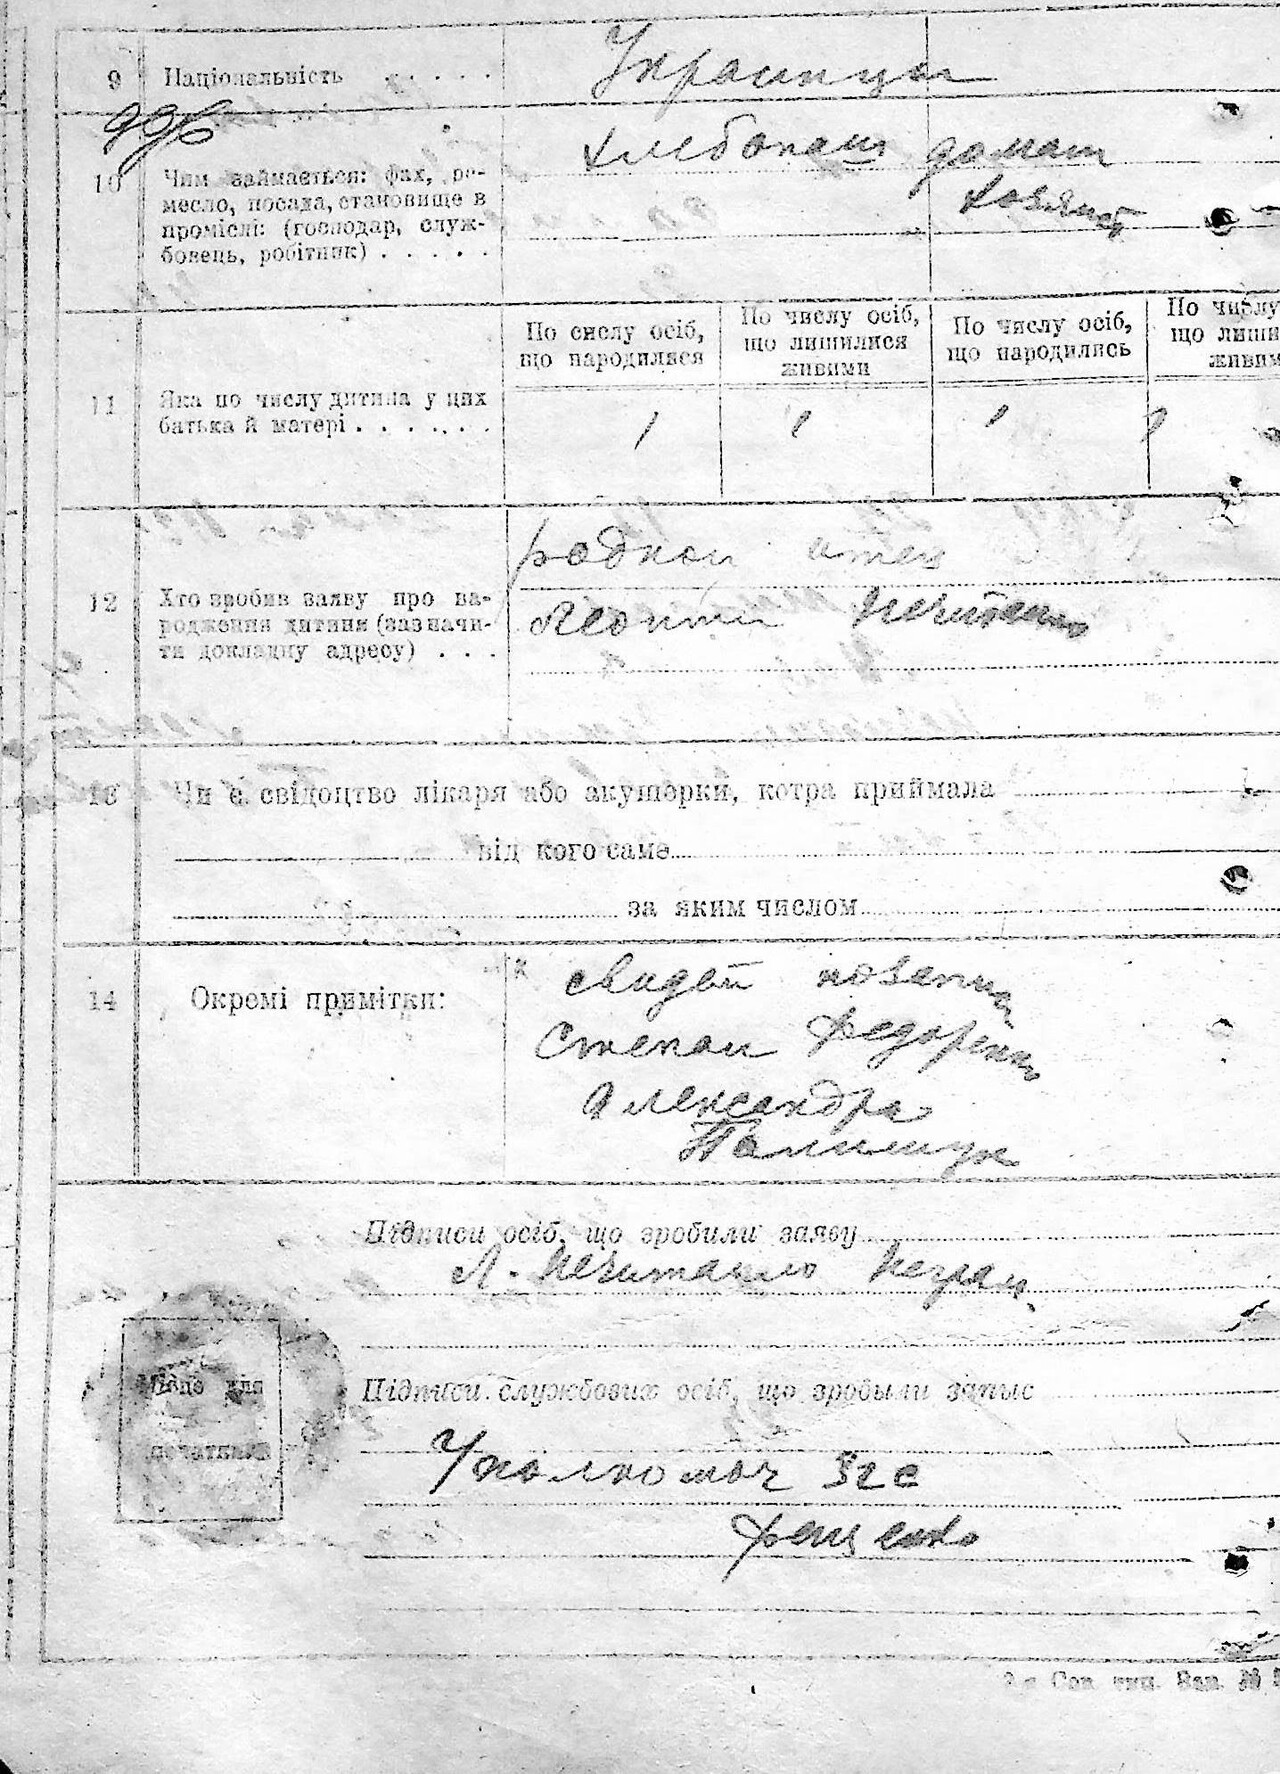 9 Національність . . . . . Украинцы
996
10 Чим займається: фах, ре-
месло, посада, становище в
промислі: (господар, служ-
бовець, робітник) . . . . .
хлебопаш домаш
хозяйс
11 Яка по числу дитина у цих
батька й матері . . . . . . .
По числу осіб,
що народилися
По числу осіб,
що лишилися
живими
По числу осіб,
що народились
По числу
що лиши
живим
1 1 1 1
12 Хто зробив заяву про на-
родження дитини (зазначи-
ти докладну адресу) . . .
родной отец
Леонтий Нечитайло
13 Чи є свідоцтво лікаря або акушерки, котра приймала
від кого саме
за яким числом
14 Окремі примітки:
Степан Федоренко
Александра
Палишук
Підписи осіб, що зробили заяву
Л. Нечитайло Неграм
Підписи службових осіб, що зробили запис
Місце для
печатки
Уполномоч Загс
Фещенко